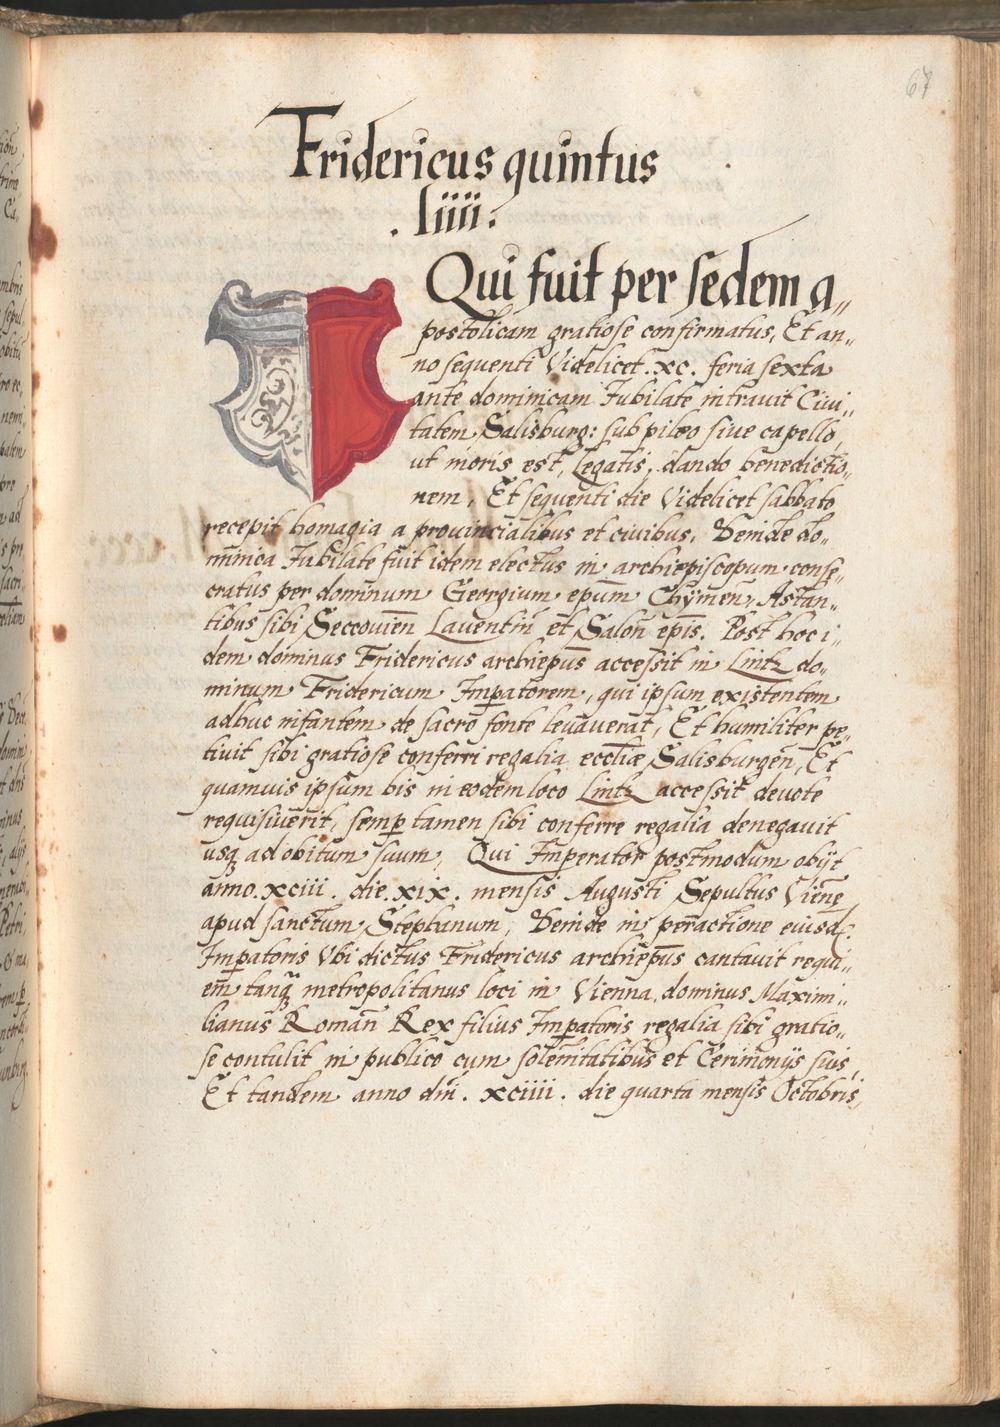 67
Fridericus quintus
. liiii .
Qui fuit per sedem a„
postolicam gratiose confirmatus, Et an„
no sequenti Videlicet . xc. feria sexta
ante dominicam Jubilate intravit Ciui„
tatem Salisburg: sub pileo siue capello,
ut moris est, Legatis, dando benedictio„
nem, Et sequenti die Videlicet sabbato
recepit homagia a provincialibus et ciuibus. Deinde do„
minica Jubilate fuit idem electus in archiepiscopum conse„
cratus per dominum Georgium epūm Chÿmen̄, Astan„
tibus sibi Seccouien̄ Lauentin̄ et Salon̄ epis. Post hoc i„
dem dominus Fridericus archiepūs accessit in Lintz do„
minum Fridericum Imp̄atorem, qui ipsum existentem
adhuc infantem de sacro fonte levaverat, Et humiliter pe„
tiuit sibi gratiose conferri regalia eccl̄iæ Salisburgen̄, Et
quamuis ipsum bis in eodem loco Lintz accessit devote
requisiuerit, semp̄ tamen sibi conferre regalia denegauit
usq̄ ad obitum suum, Qui Imperator postmodum obijt
anno . xciii . die . xix . mensis Augusti Sepultus Vienę
apud sanctum Stephanum, Deinde in peractione eiusd.
Imp̄atoris Vbi dictus Fridericus archiepūs cantauit requi„
em̄ tanq̄ metropolitanus loci in Vienna, dominus Maximi„
lianus Roman̄ Rex filius Imp̄atoris regalia sibi gratio„
se contulit in publico cum solem̄nitatibus et Cerimonijs suis,
Et tandem anno dn̄i . xciiii . die quarta mensis Octobris,